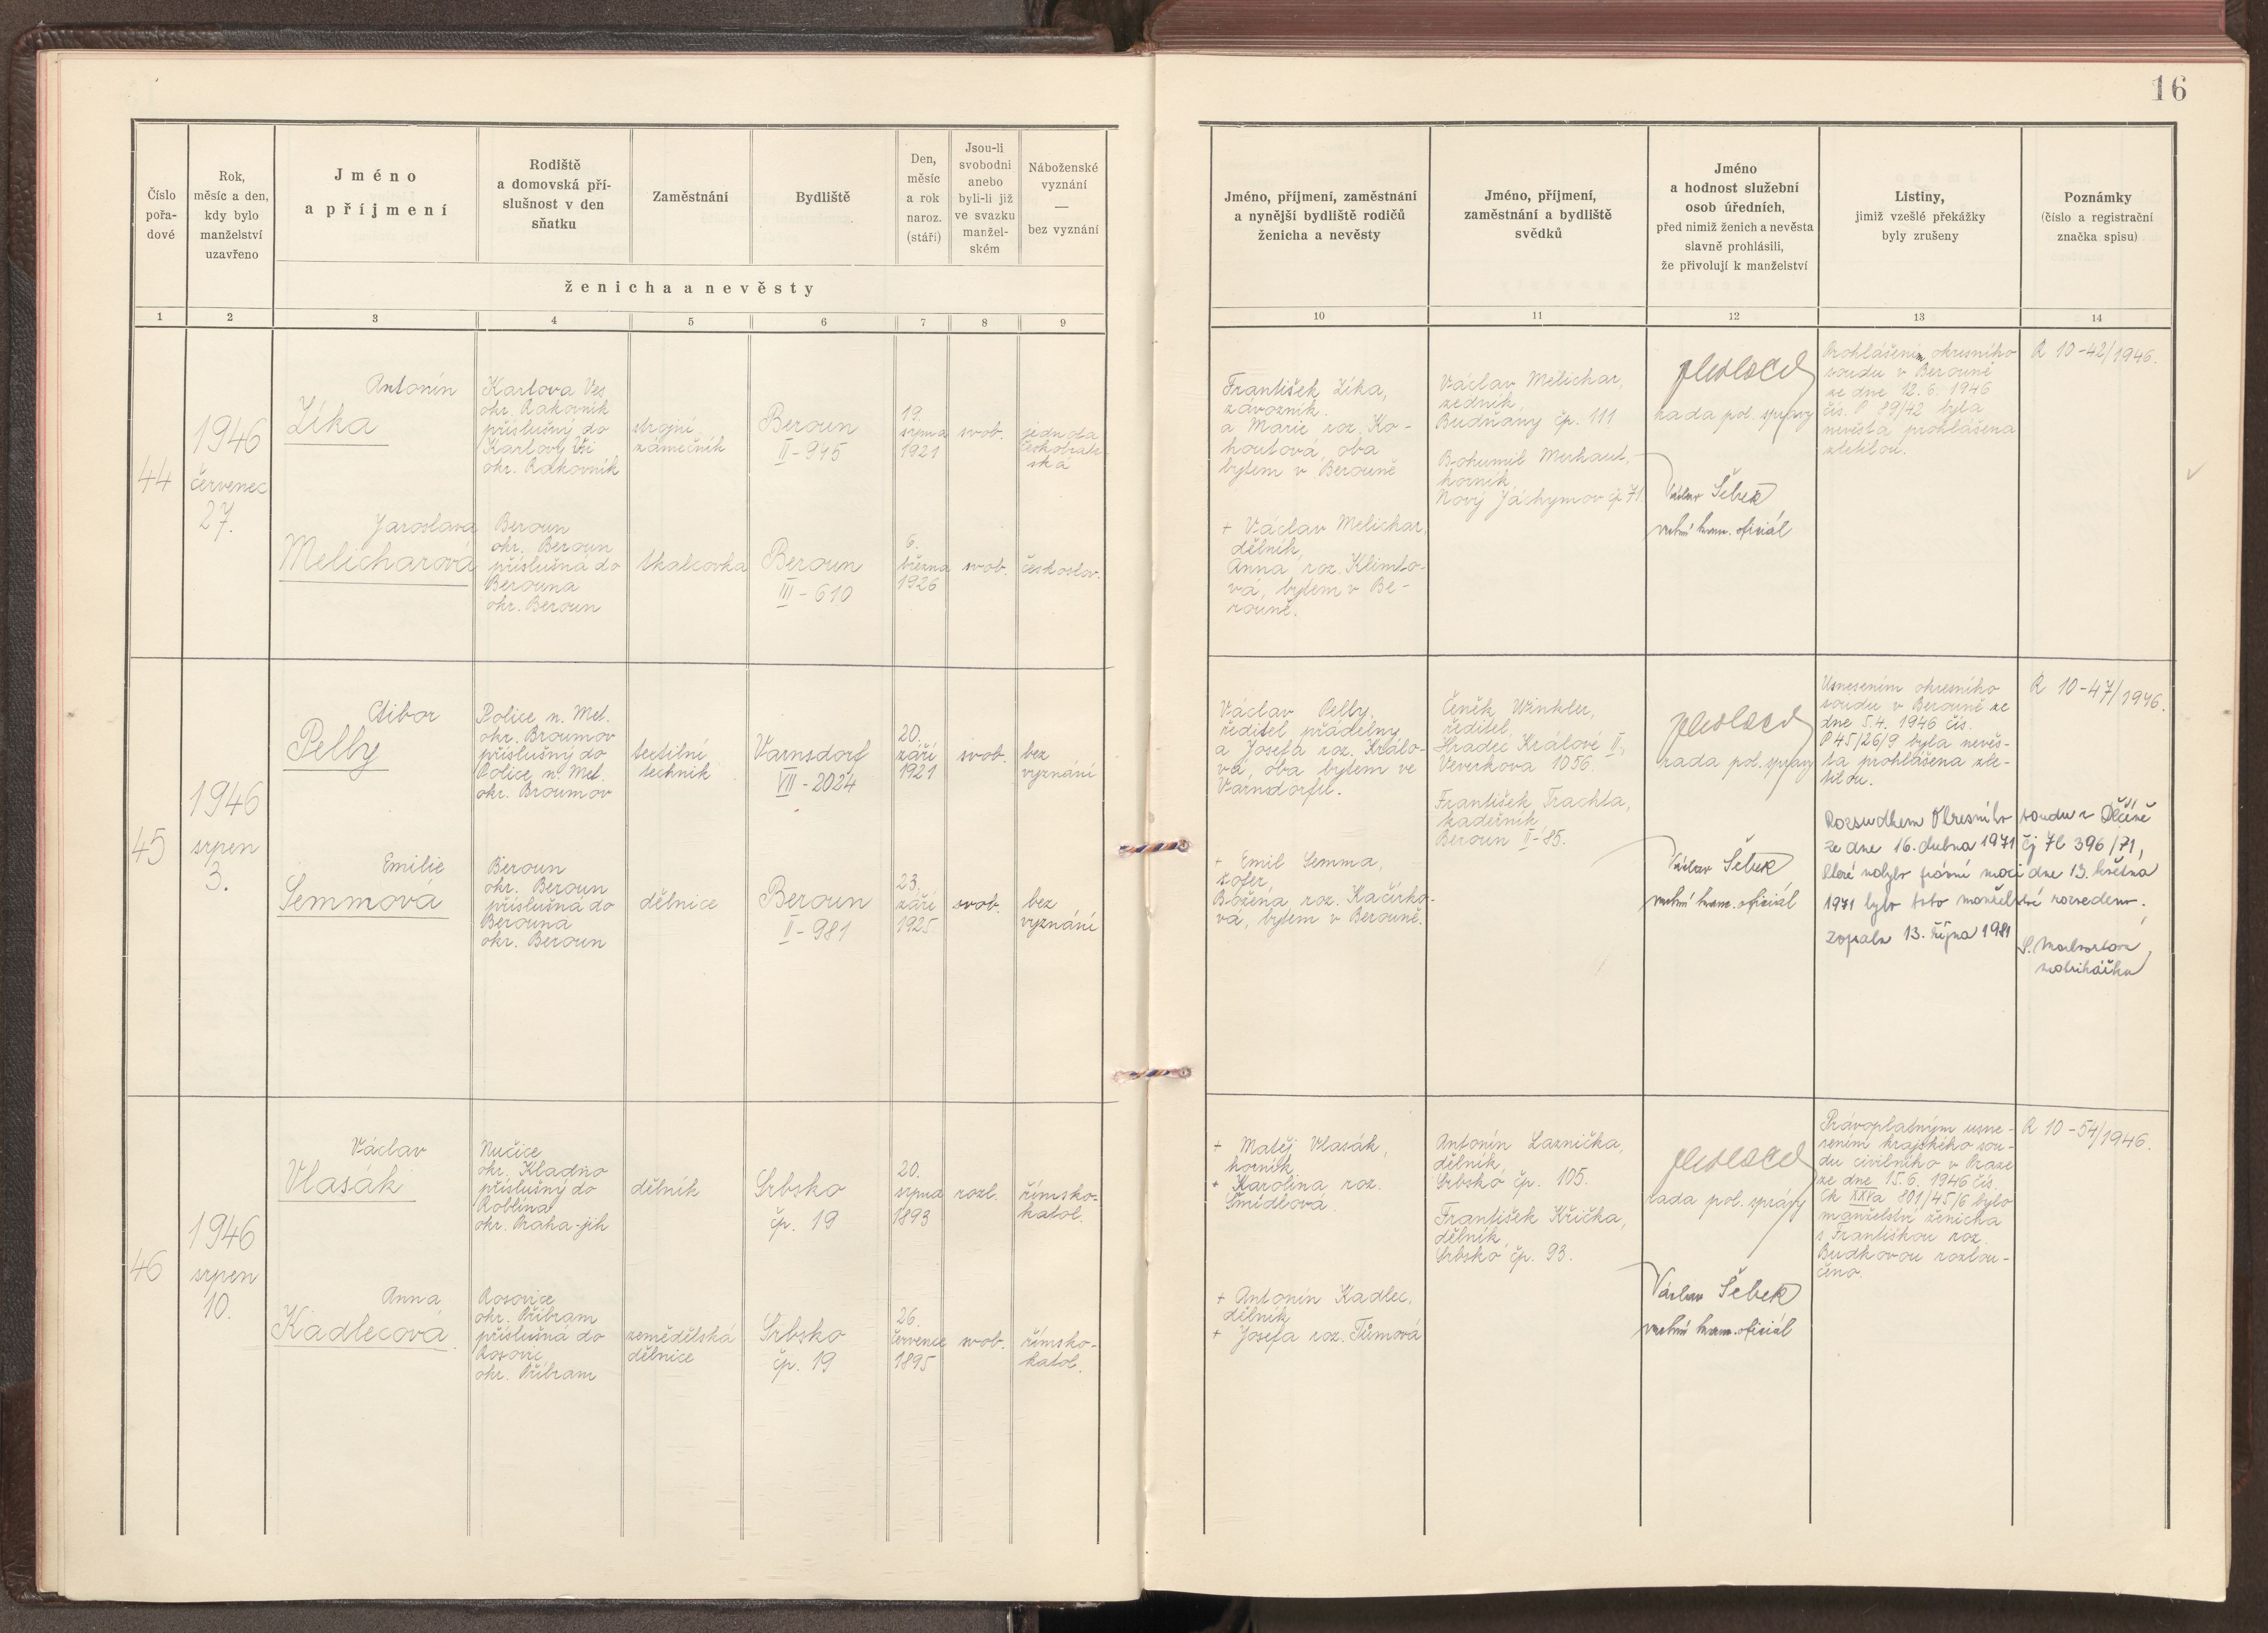 16
Číslo
pořa-
dové
Rok,
měsíc a den,
kdy bylo
manželství
uzavřeno
Jméno
a příjmení
Rodiště
a domovská pří-
slušnost v den
sňatku
Zaměstnání
Bydliště
Den,
měsíc
a rok
naroz.
(stáří)
Jsou-li
svobodni
anebo
byli-li již
ve svazku
manžel-
ském
Náboženské
vyznání
—
bez vyznání
ženicha a nevěsty
Jméno, příjmení, zaměstnání
a nynější bydliště rodičů
ženicha a nevěsty
Jméno, příjmení,
zaměstnání a bydliště
svědků
Jméno
a hodnost služební
osob úředních,
před nimiž ženich a nevěsta
slavně prohlásili,
že přivolují k manželství
Listiny,
jimiž vzešlé překážky
byly zrušeny
Poznámky
(číslo a registrační
značka spisu)
1 2 3 4 5 6 7 8 9 10 11 12 13 14
44
1946
červenec
27.
Antonín
Zíka
Karlova Ves
okr. Rakovník
příslušný do
Karlovy Vsi
okr. Rakovník
strojní
zámečník
Beroun
II-945
19.
srpna
1921
svob.
jednota
českobratr-
ská
Jaroslava
Melicharová
Beroun
okr. Beroun
příslušná do
Berouna
okr. Beroun
tkalcovka
Beroun
III-610
6.
března
1926
svob.
českoslov.
František Zíka,
závozník
a Marie roz. Ko-
houtová, oba
bytem v Berouně
+ Václav Melichar,
dělník,
Anna roz. Klimto-
vá, bytem v Be-
rouně.
Václav Melichar,
zedník,
Budňany čp. 111
Bohumil Merhaut,
horník,
Nový Jáchymov čp. 71.
rada pol. správy
Václav Šebek
vrchní kanc. oficiál
Prohlášením okresního
soudu v Berouně
ze dne 12. 6. 1946
čís. P 89/42 byla
nevěsta prohlášena
zletilou.
R 10-42/1946.
45
1946
srpen
3.
Ctibor
Pelly
Police n. Met.
okr. Broumov
příslušný do
Police n. Met.
okr. Broumov
textilní
technik
Varnsdorf
VII-2024
20.
září
1921
svob.
bez
vyznání
Emilie
Semmová
Beroun
okr. Beroun
příslušná do
Berouna
okr. Beroun
dělnice
Beroun
II-981
23.
září
1925
svob.
bez
vyznání
Václav Pelly,
ředitel přádelny
a Josefa roz. Králo-
vá, oba bytem ve
Varnsdorfu.
+ Emil Semma,
šofer,
Božena roz. Kačírko-
vá, bytem v Berouně.
Čeněk Winkler,
ředitel,
Hradec Králové II,
Veverkova 1056.
František Trachta,
kadeřník,
Beroun II-85.
rada pol. správy
Václav Šebek
vrchní kanc. oficiál
Usnesením okresního
soudu v Berouně ze
dne 5. 4. 1946 čís.
P 45/26/9 byla nevěs-
ta prohlášena zle-
tilou.
R 10-47/1946.
Rozsudkem Okresního soudu v Děčíně
ze dne 16. dubna 1971 čj 7C 396/71,
které nabylo právní moci dne 13. května
1971 bylo toto manželství rozvedeno.
Zapsala 13. října 1981
matrikářka
46
1946
srpen
10.
Václav
Vlasák
Nučice
okr. Kladno
příslušný do
Roblína
okr. Praha-jih
dělník
Srbsko
čp. 19
20.
srpna
1893
rozl.
římsko-
katol.
Anna
Kadlecová
Rosovice
okr. Příbram
příslušná do
Rosovic
okr. Příbram
zemědělská
dělnice
Srbsko
čp. 19
26.
července
1895
svob.
římsko-
katol.
+ Matěj Vlasák,
horník,
+ Karolina roz.
Šmídlová
+ Antonín Kadlec,
dělník
+ Josefa roz. Tůmová
Antonín Laznička,
dělník,
Srbsko čp. 105.
František Křička,
dělník,
Srbsko čp. 93.
rada pol. správy
Václav Šebek
vrchní kanc. oficiál
Právoplatným usne-
sením krajského sou-
du civilního v Praze
ze dne 15. 6. 1946 čís.
Ck XXVa 801/45/6 bylo
manželství ženicha
s Františkou roz.
Budkovou rozlou-
čeno.
R 10-54/1946.